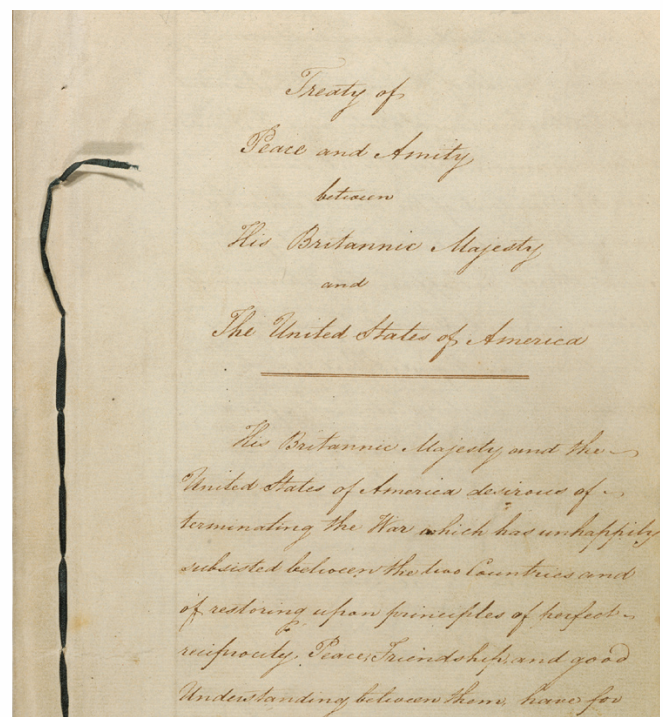 Treaty of
Peace and Amity
between
His Britannic Majesty
and
The United States of America
His Britannic Majesty and the
United States of America desirous of
terminating the War which has unhappily
subsisted between the two Countries and
of restoring upon principles of perfect
reciprocity, Peace, Friendship, and good
Understanding between them, have for